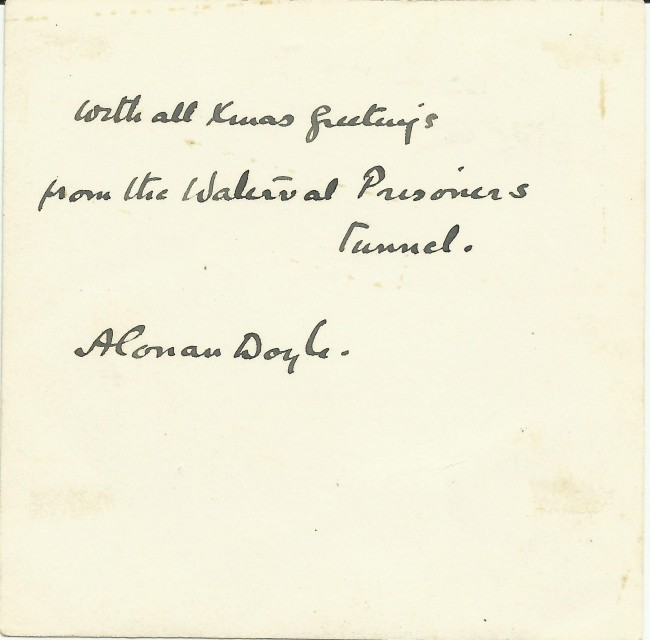 With all Xmas Greetings
from the Waterval Prisoners
Tunnel.
A Conan Doyle.